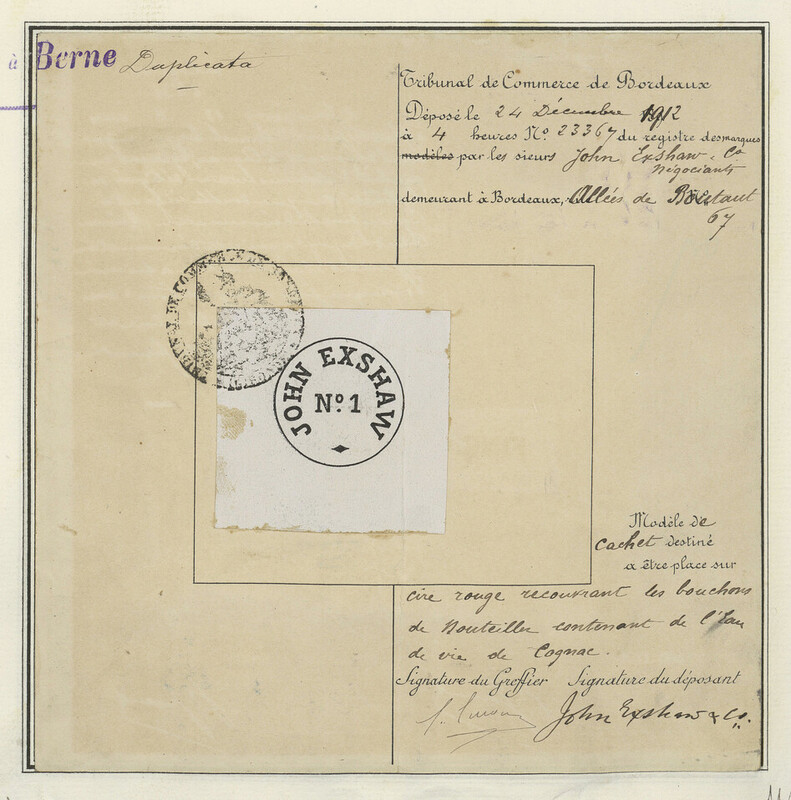 à Berne
Duplicata
Tribunal de Commerce de Bordeaux
Déposé le 24 Décembre 1912
à 4 heures Nº 23367 du registre des marques
modèles par les sieurs John Exshaw & Co
négociants
demeurant à Bordeaux, Allées de Boutaut
67
JOHN EXSHAW
Nº 1
Modèle de
cachet destiné
à être placé sur
cire rouge recouvrant les bouchons
de bouteilles contenant de l'Eau
de vie de Cognac.
Signature du Greffier Signature du déposant
John Exshaw & Co.